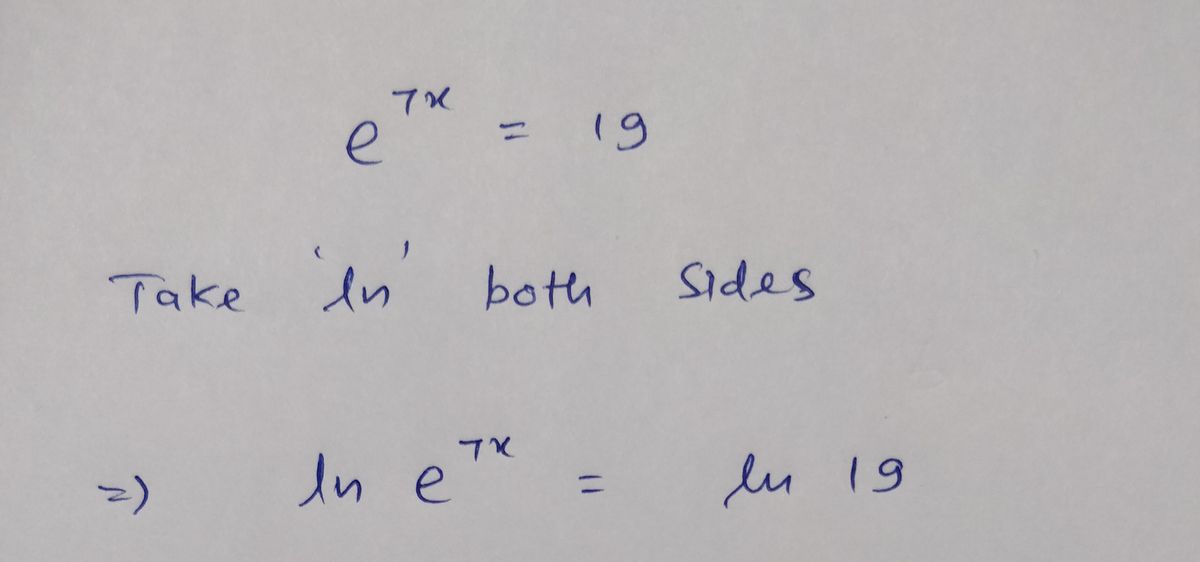 e^{7x} = 19
Take 'ln' both sides
=) ln e^{7x} = ln 19